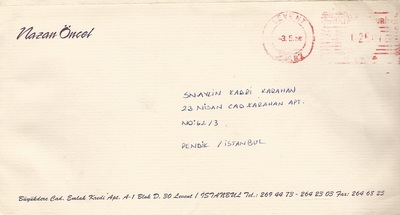 Nazan Öncel
LEVENT
-3.5.
SN. AYKIN KADRİ KARAHAN
23 NİSAN CAD. KARAHAN APT.
NO: 62/3
PENDİK / İSTANBUL
Büyükdere Cad. Emlak Kredi Apt. A-1 Blok D. 30 Levent / İSTANBUL Tel.: 269 44 73 - 264 23 03 Fax: 264 68 25